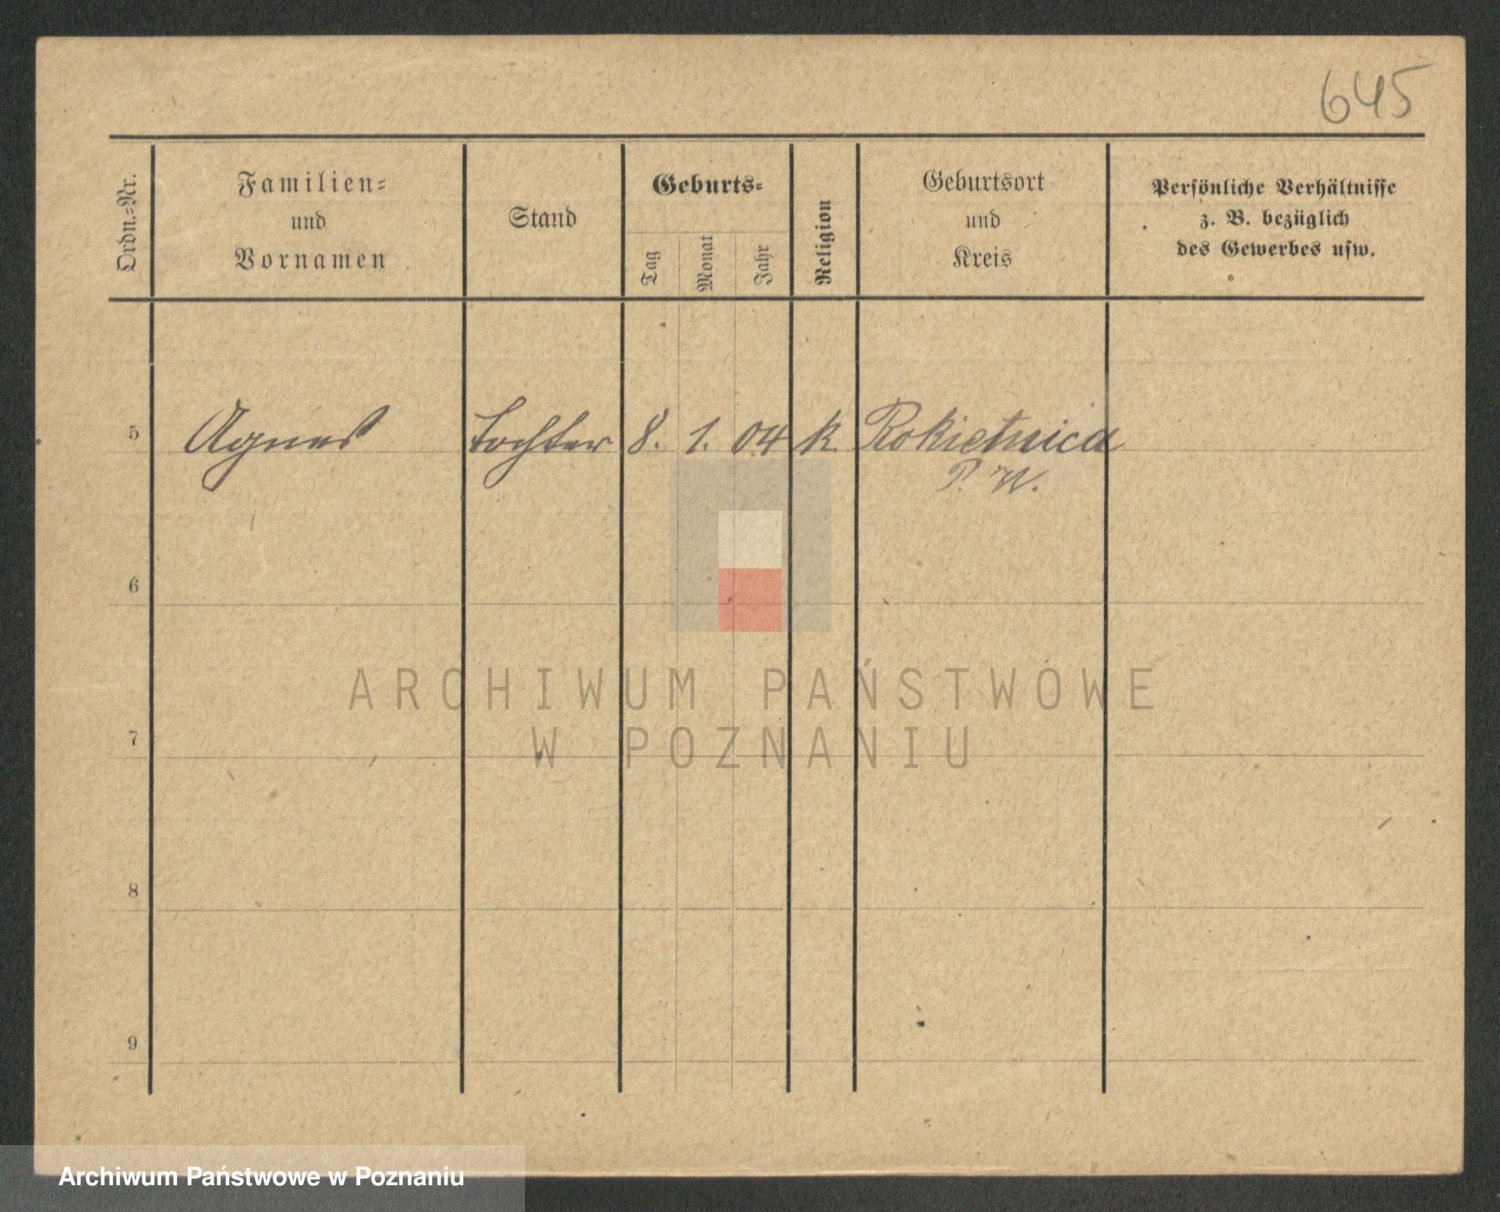 645
Ordn.-Nr.
Familien-
und
Vornamen
Stand
Geburts-
Tag
Monat
Jahr
Religion
Geburtsort
und
Kreis
Persönliche Verhältnisse
z. B. bezüglich
des Gewerbes usw.
5 Agnes Tochter 8. 1. 04 k. Rokietnica
P. W.
6
7
8
9
ARCHIWUM PAŃSTWOWE
W POZNANIU
Archiwum Państwowe w Poznaniu